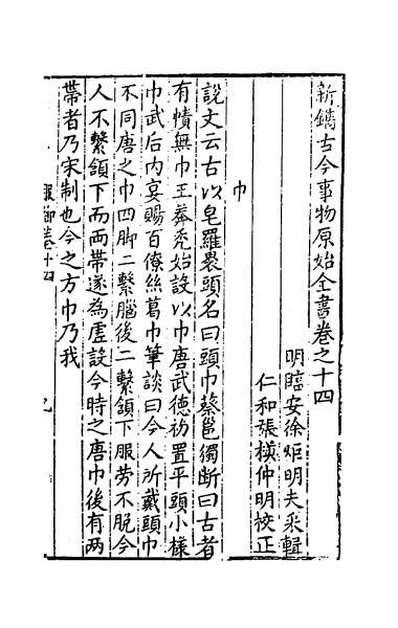 新鐫古今事物原始全書卷之十四
明臨安徐炬明夫采輯
仁和張楧仲明校正
巾
說文云古以皂羅裹頭名曰頭巾蔡邕獨斷曰古者
有幘無巾王莽禿始設以巾唐武德初置平頭小樣
巾武后内宴賜百僚絲葛巾筆談曰今人所戴頭巾
不同唐之巾四脚二繫腦後二繫頷下服勞不脫今
人不繫頷下而兩帶遂為虛設今時之唐巾後有两
帶者乃宋制也今之方巾乃我
服御卷十四